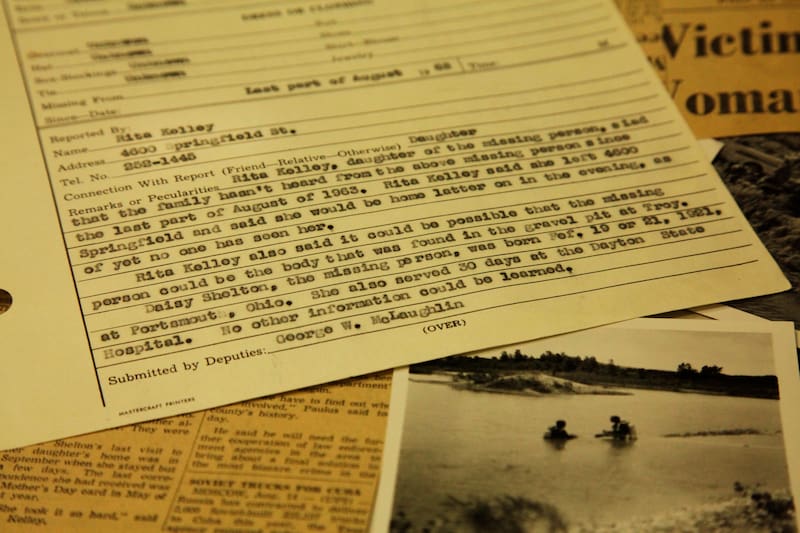 DRESS OR CLOTHING
Unknown
Unknown
Sox-Stockings Unknown
Tie
Missing From
Since—Date: Last part of August 19 63 Time: M
Reported By:
Name Rita Kelley
Address 4600 Springfield St.
Tel. No. 252-1445
Connection With Report (Friend—Relative—Otherwise) Daughter
Remarks or Pecularities Rita Kelley, daughter of the missing person, siad
that the family hasn't heard from the above missing person since
the last part of August of 1963. Rita Kelley said she left 4600
Springfield and said she would be home latter on in the evening, as
of yet no one has seen her.
Rita Kelley also said it could be possible that the missing
person could be the body that was found in the gravel pit at Troy.
Daisy Shelton, the missing person, was born Fef. 19 or 21, 1921,
at Portsmouth, Ohio. She also served 30 days at the Dayton State
Hospital. No other information could be learned.
Submitted by Deputies: George W. McLaughlin
(OVER)
MASTERCRAFT PRINTERS
Victim
Woma
They were
Shelton's last visit to
her daughter's home was in
September when she stayed but
a few days. The last corre-
pondence she had received was
Mother's Day card in May of
t year.
She took it so hard," said
Kelley,
department
have to find out who
involved," Paulus said
county's history.
day.
He said he will need the fur-
ther cooperation of law enforce-
ment agencies in the area to
bring about a final solution to
the most bizarre crime in the
SOVIET TRUCKS FOR CUBA
MOSCOW, Aug.
Russia has contracted to deliver
2,000 Soviet-built
to Cuba this year, the